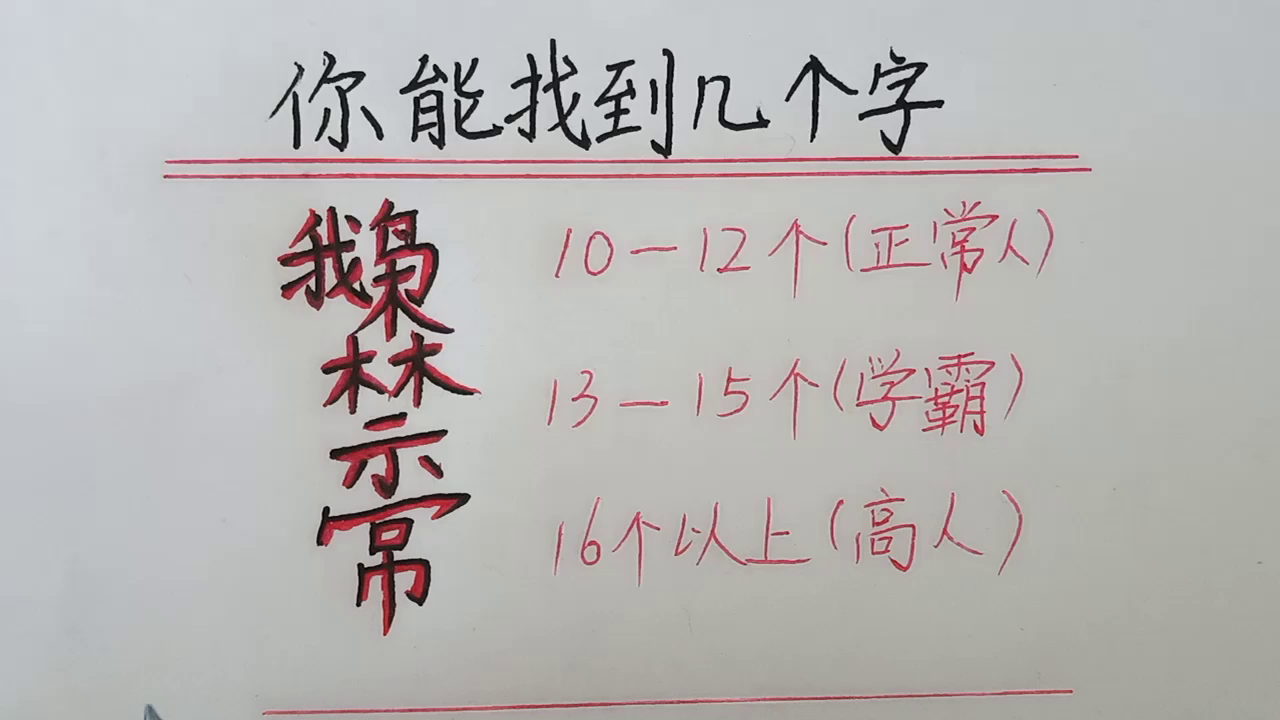 你能找到几个字
10-12个(正常人)
13-15个(学霸)
16个以上(高人)